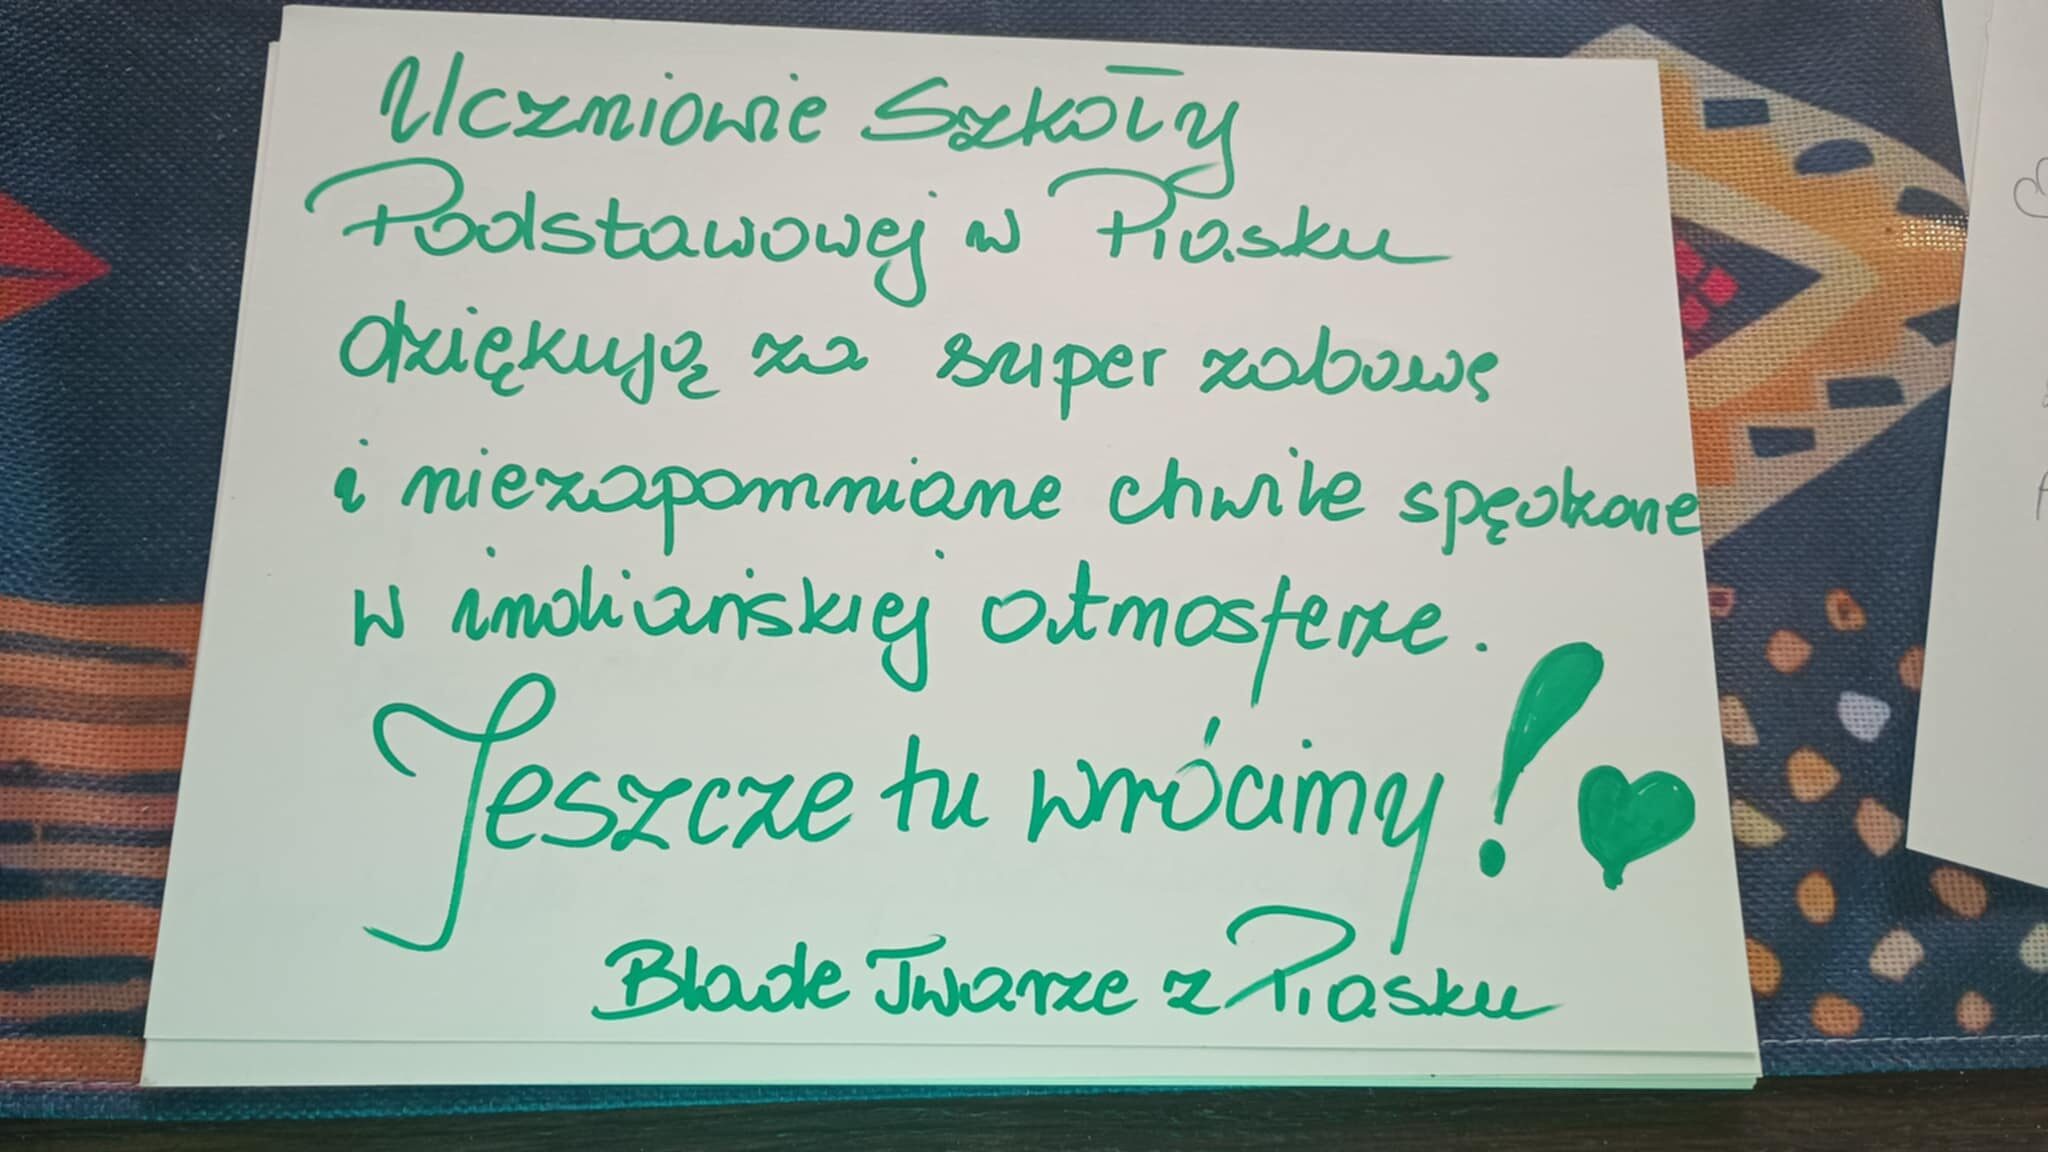 Uczniowie Szkoły
Podstawowej w Piasku
dziękują za super zabawę
i niezapomniane chwile spędzone
w indiańskiej atmosferze.
Jeszcze tu wrócimy!
Blade Twarze z Piasku